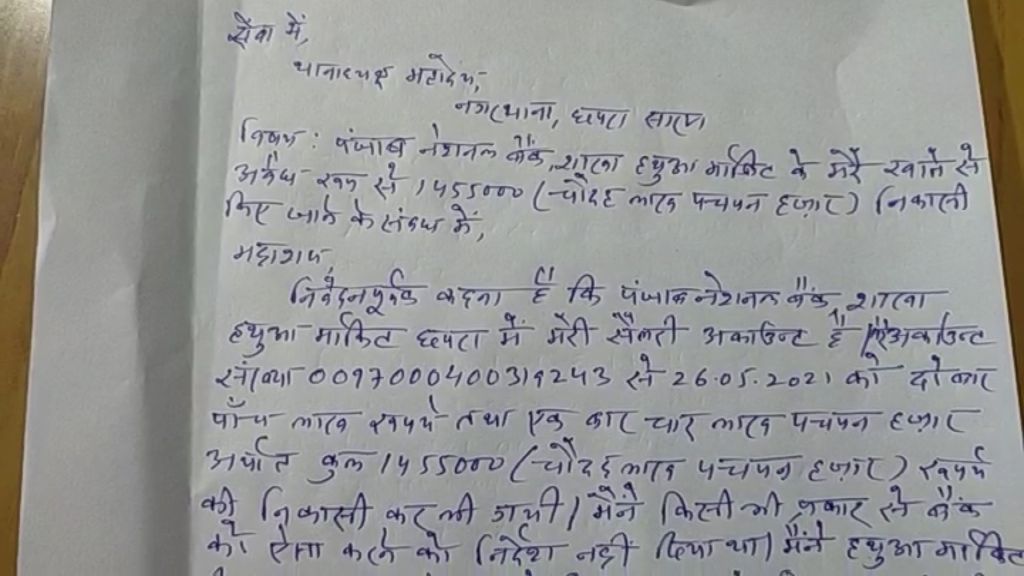 सेवा में,
थानाध्यक्ष महोदय,
नगर थाना, छपरा सारण
विषय : पंजाब नेशनल बैंक, शाखा हथुआ मार्किट के मेरे खाते से
अवैध रूप से 1455000 (चौदह लाख पचपन हज़ार) निकासी
किए जाने के संबंध में,
महाशय,
निवेदनपूर्वक कहना है कि पंजाब नेशनल बैंक, शाखा
हथुआ मार्किट छपरा में मेरी सैलरी अकाउन्ट है अकाउन्ट
संख्या 0097000400319243 से 26.05.2021 को दो बार
पाँच लाख रुपये तथा एक बार चार लाख पचपन हज़ार
अर्थात कुल 1455000 (चौदह लाख पचपन हज़ार) रुपये
की निकासी कर ली गयी। मैंने किसी भी प्रकार से बैंक
को ऐसा करने को निर्देश नहीं दिया था। मैंने हथुआ मार्किट